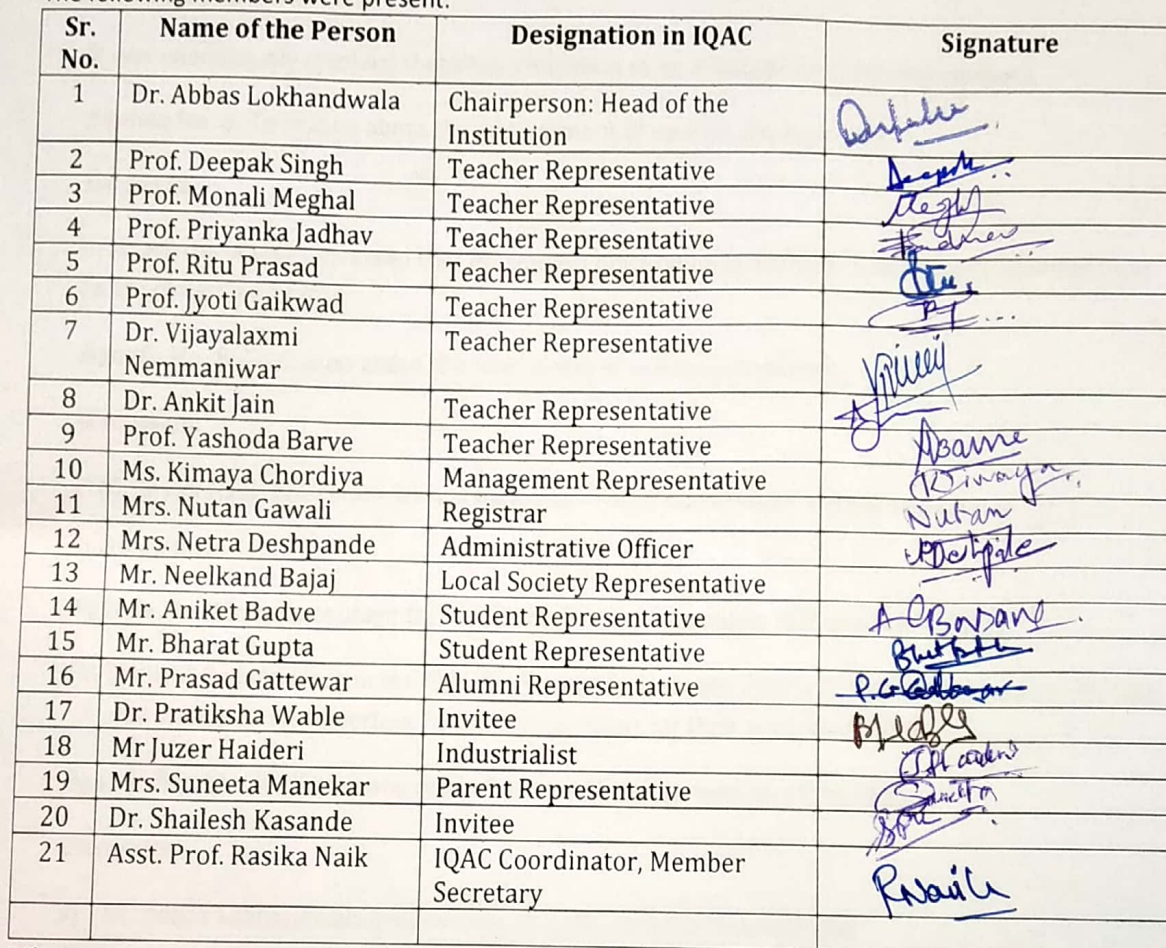 The following members were present:
Sr. No. Name of the Person Designation in IQAC Signature
1 Dr. Abbas Lokhandwala Chairperson: Head of the Institution
2 Prof. Deepak Singh Teacher Representative Deepak
3 Prof. Monali Meghal Teacher Representative
4 Prof. Priyanka Jadhav Teacher Representative
5 Prof. Ritu Prasad Teacher Representative
6 Prof. Jyoti Gaikwad Teacher Representative
7 Dr. Vijayalaxmi Nemmaniwar Teacher Representative
8 Dr. Ankit Jain Teacher Representative
9 Prof. Yashoda Barve Teacher Representative
10 Ms. Kimaya Chordiya Management Representative Kimaya
11 Mrs. Nutan Gawali Registrar Nutan
12 Mrs. Netra Deshpande Administrative Officer
13 Mr. Neelkand Bajaj Local Society Representative
14 Mr. Aniket Badve Student Representative
15 Mr. Bharat Gupta Student Representative
16 Mr. Prasad Gattewar Alumni Representative
17 Dr. Pratiksha Wable Invitee
18 Mr Juzer Haideri Industrialist
19 Mrs. Suneeta Manekar Parent Representative
20 Dr. Shailesh Kasande Invitee
21 Asst. Prof. Rasika Naik IQAC Coordinator, Member Secretary RNaik